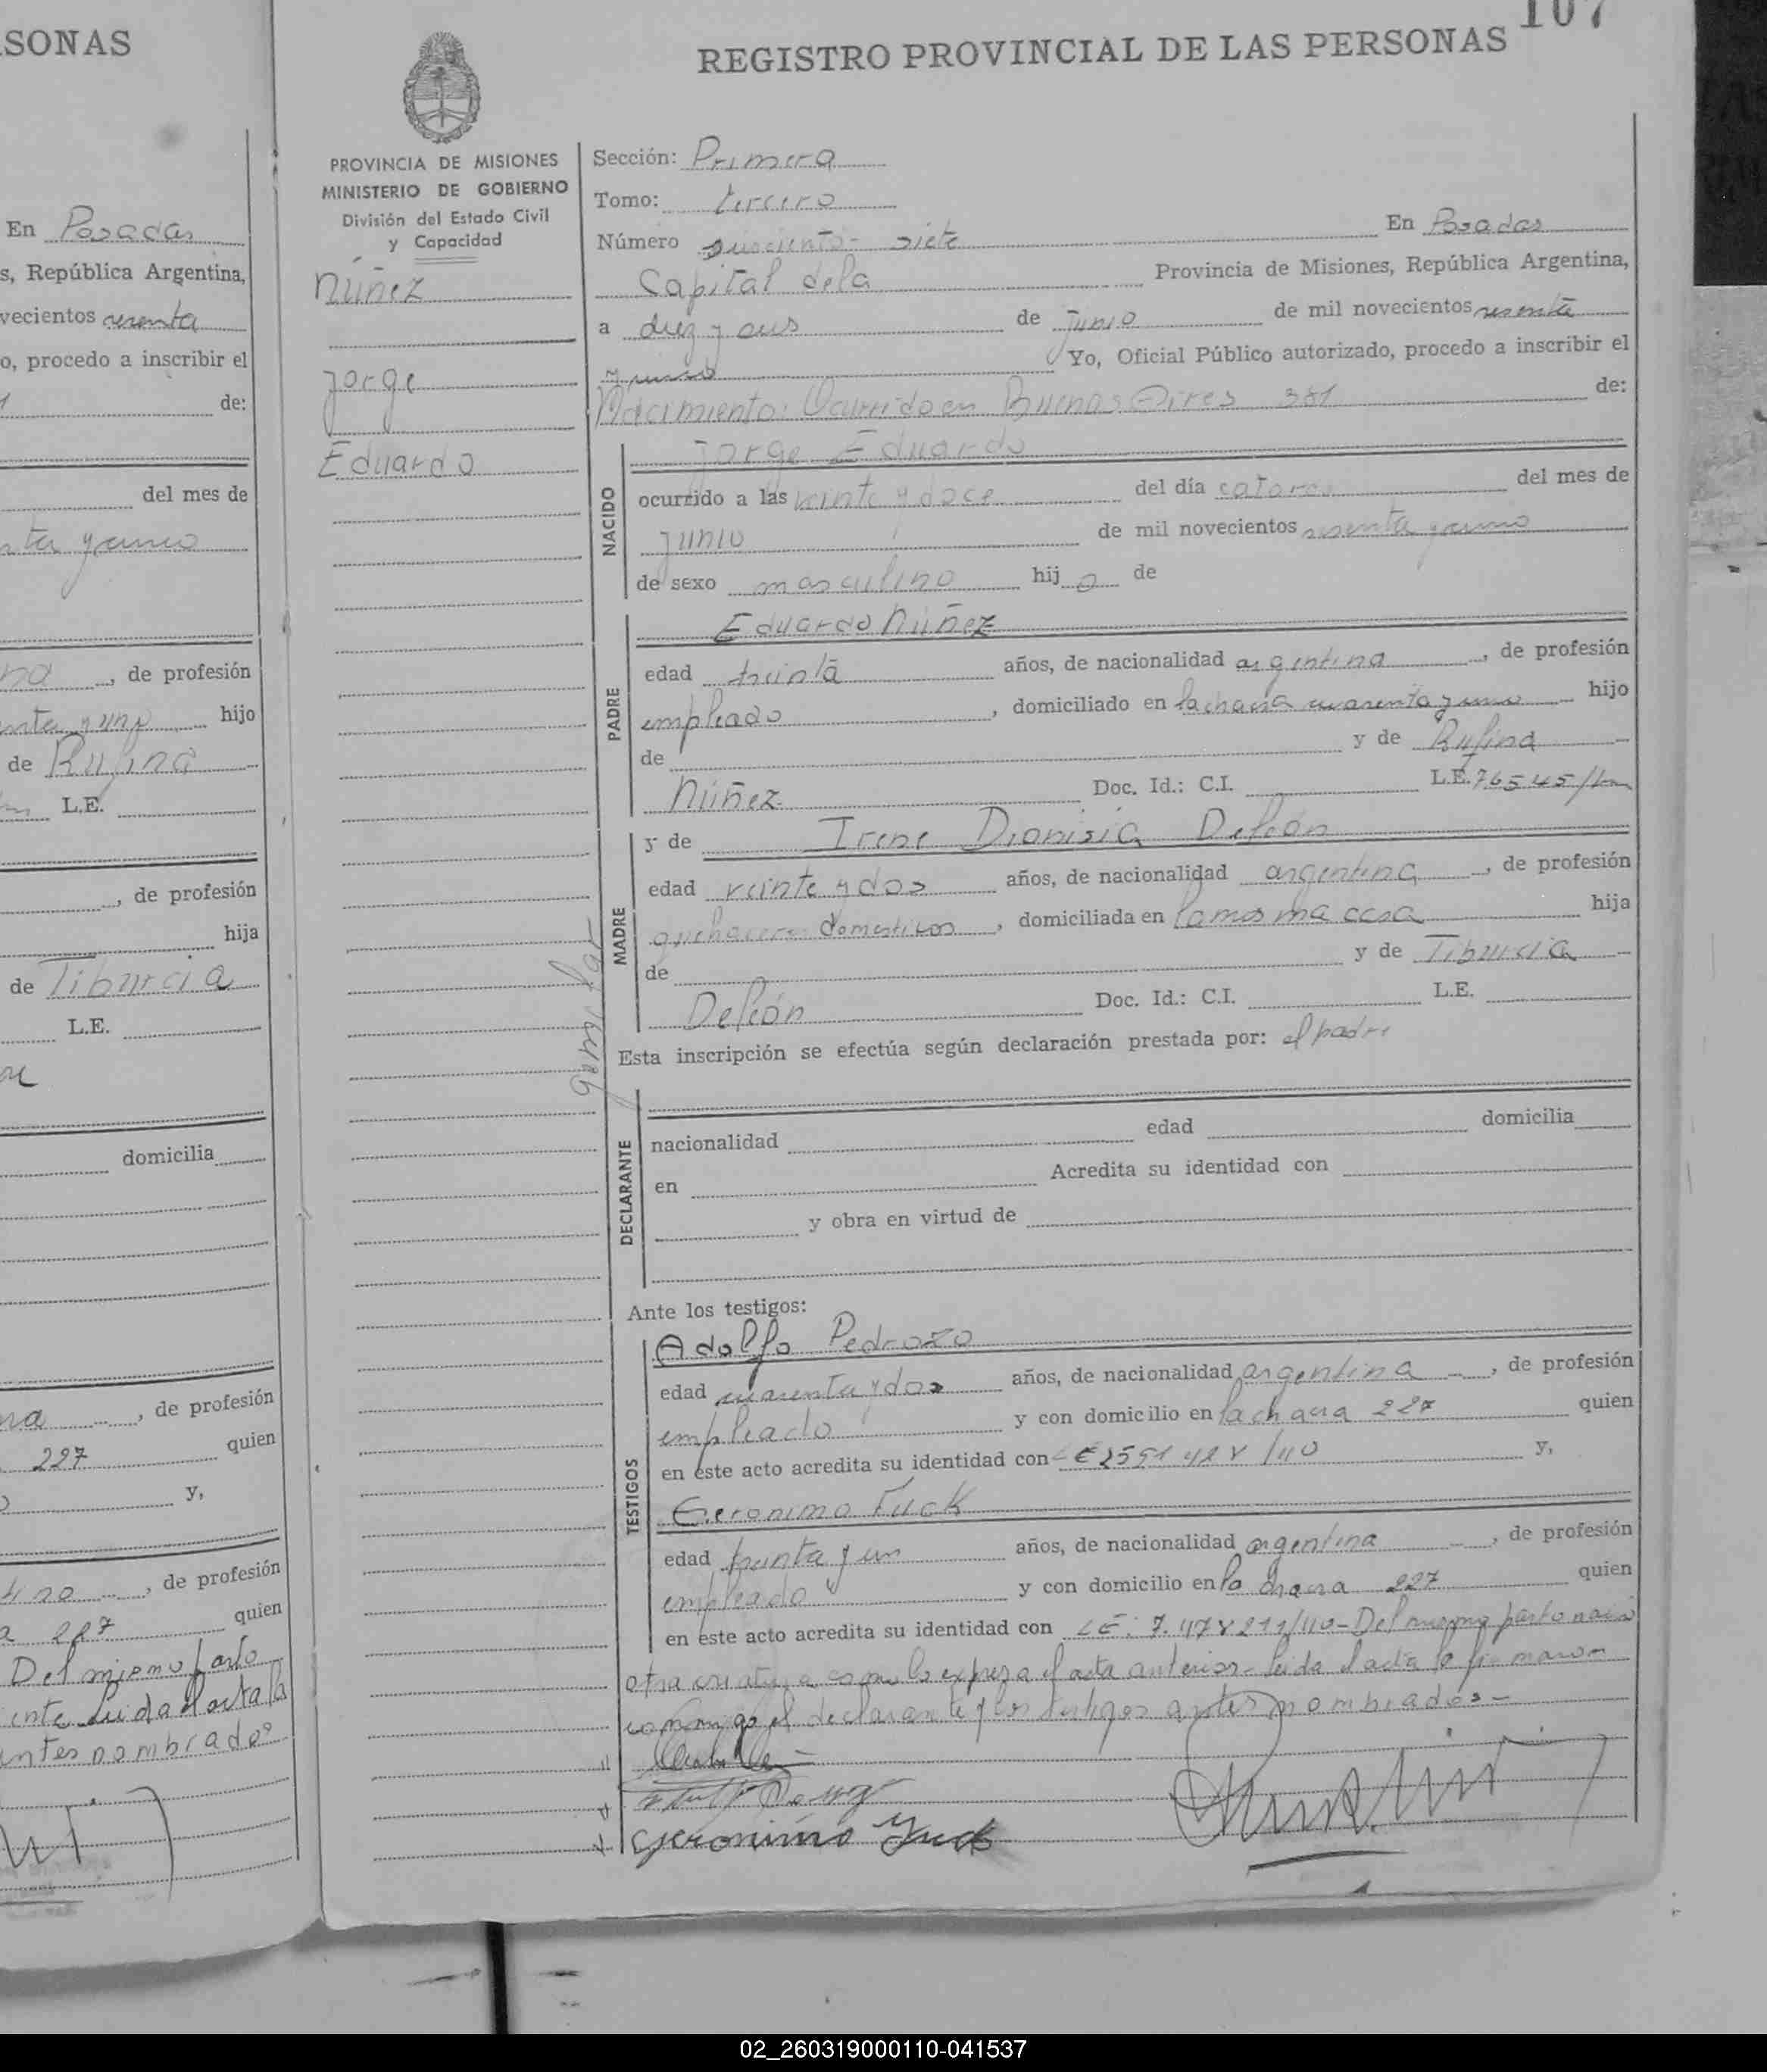 SONAS
En Posadas
s, República Argentina,
vecientos sesenta
o, procedo a inscribir el
de:
del mes de
nta y uno
na, de profesión
enta y uno hijo
de Rufina
L.E.
, de profesión
hija
de Tiburcia
L.E.
domicilia
na, de profesión
227 quien
y,
, de profesión
a 227 quien
Del mismo parto
ente Leida el acta la
antes nombrados
107
REGISTRO PROVINCIAL DE LAS PERSONAS
PROVINCIA DE MISIONES
MINISTERIO DE GOBIERNO
División del Estado Civil
y Capacidad
Núñez
Jorge
Eduardo
gemelar
Sección: Primera
Tomo: tercero
Número doscientos siete En Posadas
Capital dela Provincia de Misiones, República Argentina,
a diez y seis de junio de mil novecientos sesenta
y uno Yo, Oficial Público autorizado, procedo a inscribir el
Nacimiento: Ocurrido en Buenos Aires 381 de:
NACIDO
Jorge Eduardo
ocurrido a las veinte y doce del día catorce del mes de
junio de mil novecientos sesenta y uno
de sexo masculino hijo de
PADRE
Eduardo Núñez
edad treinta años, de nacionalidad argentina, de profesión
empleado, domiciliado en la chacra cuarenta y uno hijo
de y de Rufina
Núñez Doc. Id.: C.I. L.E.
MADRE
y de Irene Dionisia Deleón
edad veinte y dos años, de nacionalidad argentina, de profesión
quehaceres domésticos, domiciliada en la misma casa hija
de y de Tiburcia
Deleón Doc. Id.: C.I. L.E.
Esta inscripción se efectúa según declaración prestada por: el padre
DECLARANTE
nacionalidad edad domicilia
en Acredita su identidad con
y obra en virtud de
Ante los testigos:
TESTIGOS
Adolfo Pedrozo
edad cuarenta y dos años, de nacionalidad argentina, de profesión
empleado y con domicilio en la chacra 227 quien
en este acto acredita su identidad con y,
Geronimo Fuck
edad treinta y un años, de nacionalidad argentina, de profesión
empleado y con domicilio en la chacra 227 quien
en este acto acredita su identidad con L E: Del mismo parto nació
otra criatura como lo expresa el acta anterior - Leida el acta la firmaron
conmigo el declarante y los testigos antes nombrados -
Geronimo Fuck
02_260319000110-041537